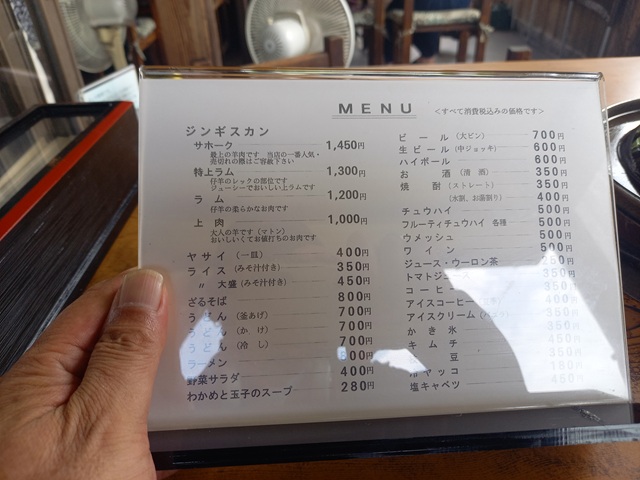 MENU
<すべて消費税込みの価格です>
ジンギスカン
サホーク 1,450円
最上の羊肉です 当店の一番人気・
売切れの際はご容赦下さい
特上ラム 1,300円
仔羊のレックの部位です
ジューシーでおいしい上ラムです
ラム 1,200円
仔羊の柔らかなお肉です
上肉 1,000円
大人の羊です(マトン)
おいしくてお値打ちのお肉です
ヤサイ(一皿) 400円
ライス(みそ汁付き) 350円
〃 大盛(みそ汁付き) 450円
ざるそば 800円
うどん(釜あげ) 700円
うどん(かけ) 700円
うどん(冷し) 700円
ラーメン 00円
野菜サラダ 400円
わかめと玉子のスープ 280円
ビール(大ビン) 700円
生ビール(中ジョッキ) 600円
ハイボール 600円
お酒(清酒) 350円
焼酎(ストレート) 350円
(水割、お茶割り) 400円
チュウハイ 500円
フルーティチュウハイ 各種 500円
ウメッシュ 500円
ワイン 500円
ジュース・ウーロン茶 250円
トマトジュース
コーヒー 350円
アイスコーヒー 400円
アイスクリーム 350円
かき氷 350円
キムチ 450円
豆 350円
冷ヤッコ 180円
塩キャベツ 450円